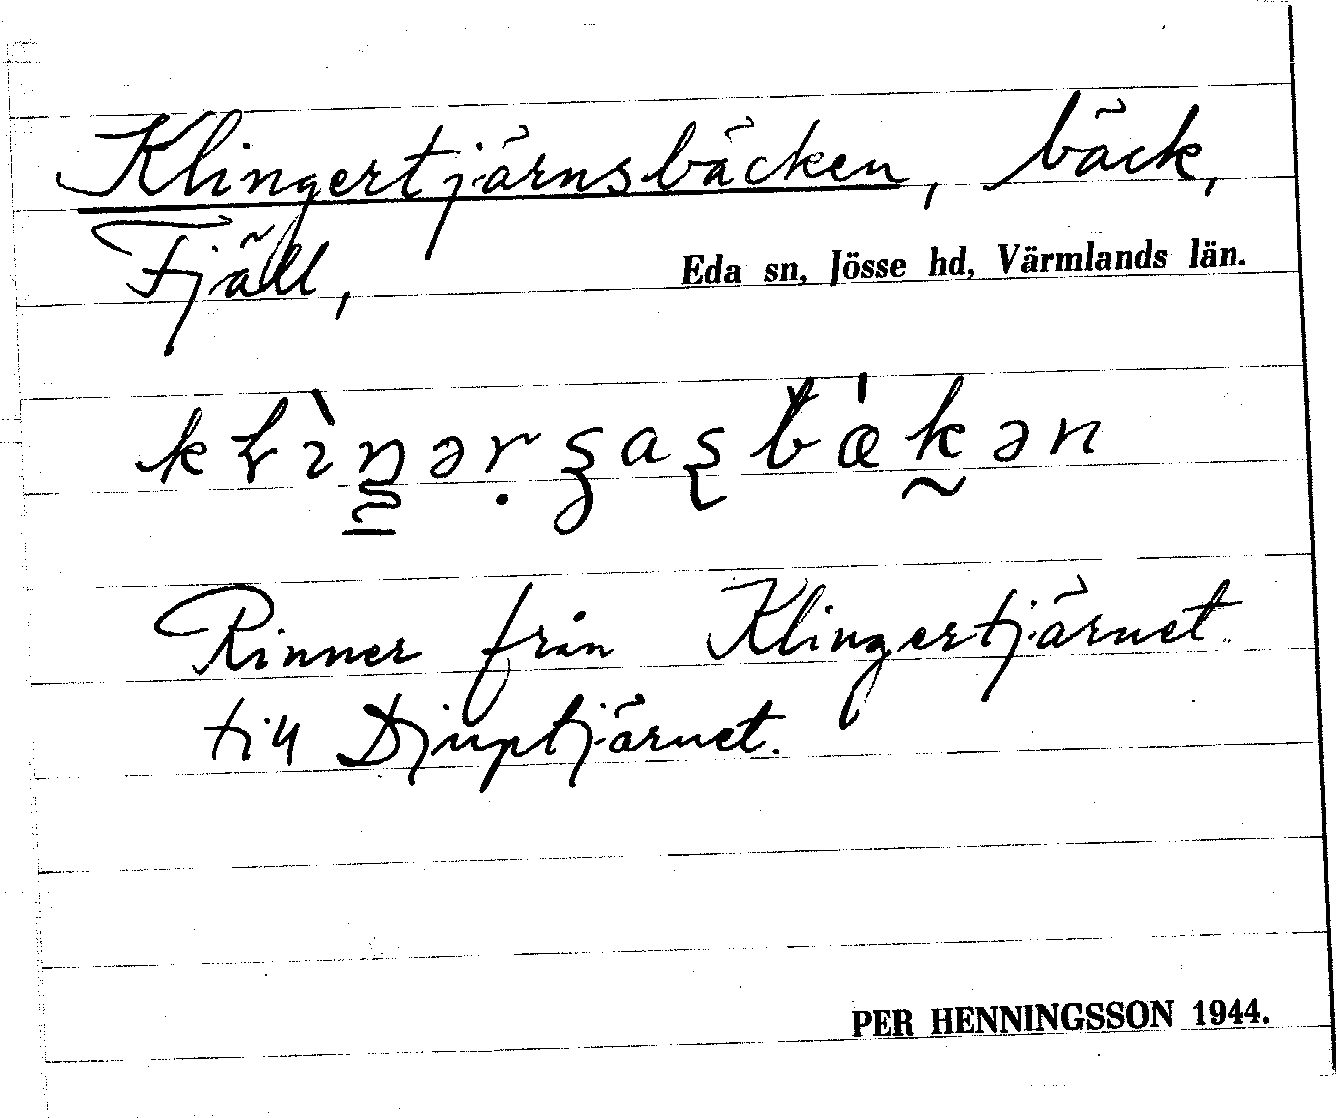 Klingertjärnsbäcken, bäck,
Fjäll,
Eda sn, Jösse hd, Värmlands län.
Rinner från Klingertjärnet
till Djuptjärnet.
PER HENNINGSSON 1944.